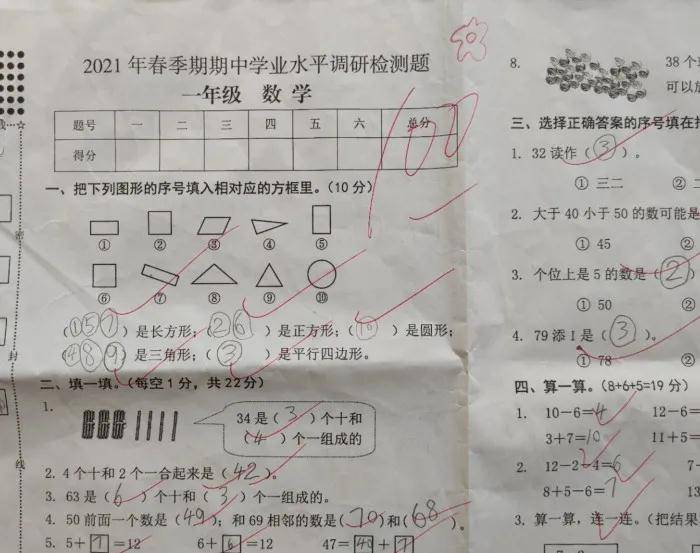 2021年春季期期中学业水平调研检测题
一年级 数学
题号 一 二 三 四 五 六 总分
得分
100
一、把下列图形的序号填入相对应的方框里。(10分)
① ② ③ ④ ⑤
⑥ ⑦ ⑧ ⑨ ⑩
(①⑤⑦)是长方形;(②⑥)是正方形;(⑩)是圆形;
(④⑧⑨)是三角形;(③)是平行四边形。
二、填一填。(每空1分,共22分)
1.
34是(3)个十和
(4)个一组成的
2. 4个十和2个一合起来是(42)。
3. 63是(6)个十和(3)个一组成的。
4. 50前面一个数是(49);和69相邻的数是(70)和(68)。
5. 5+7=12 6+6=12 47=40+7
8. 38个
可以
三、选择正确答案的序号填在
1. 32读作(③)。
① 三二 ②
2. 大于40小于50的数可能是
① 45 ②
3. 个位上是5的数是(②)
① 50 ②
4. 79添1是(③)。
① 78 ②
四、算一算。(8+6+5=19分)
1. 10-6=4 12-6=
3+7=10 11+5=
2. 12-2-4=6 7-
8+5-6=7 13
3. 算一算,连一连。(把结果
密
封
线